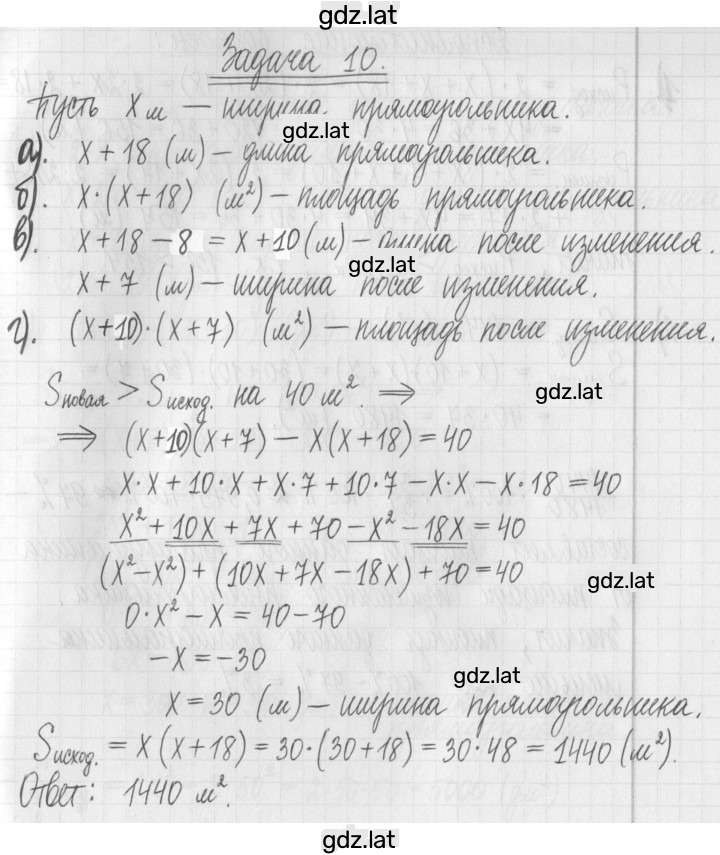 gdz.lat
Задача 10.
Пусть x м — ширина прямоугольника.
gdz.lat
а). x + 18 (м) – длина прямоугольника.
б). x·(x+18) (м²) – площадь прямоугольника.
в). x + 18 – 8 = x + 10 (м) – длина после изменения.
gdz.lat
x + 7 (м) – ширина после изменения.
г). (x+10)·(x+7) (м²) – площадь после изменения.
Sновая > Sисход. на 40 м² ⇒
gdz.lat
⇒ (x+10)(x+7) – x(x+18) = 40
x·x + 10·x + x·7 + 10·7 – x·x – x·18 = 40
x² + 10x + 7x + 70 – x² – 18x = 40
(x² – x²) + (10x + 7x – 18x) + 70 = 40
gdz.lat
0·x² – x = 40 – 70
– x = – 30
gdz.lat
x = 30 (м) – ширина прямоугольника.
Sисход. = x(x+18) = 30·(30+18) = 30·48 = 1440 (м²).
Ответ: 1440 м².
gdz.lat